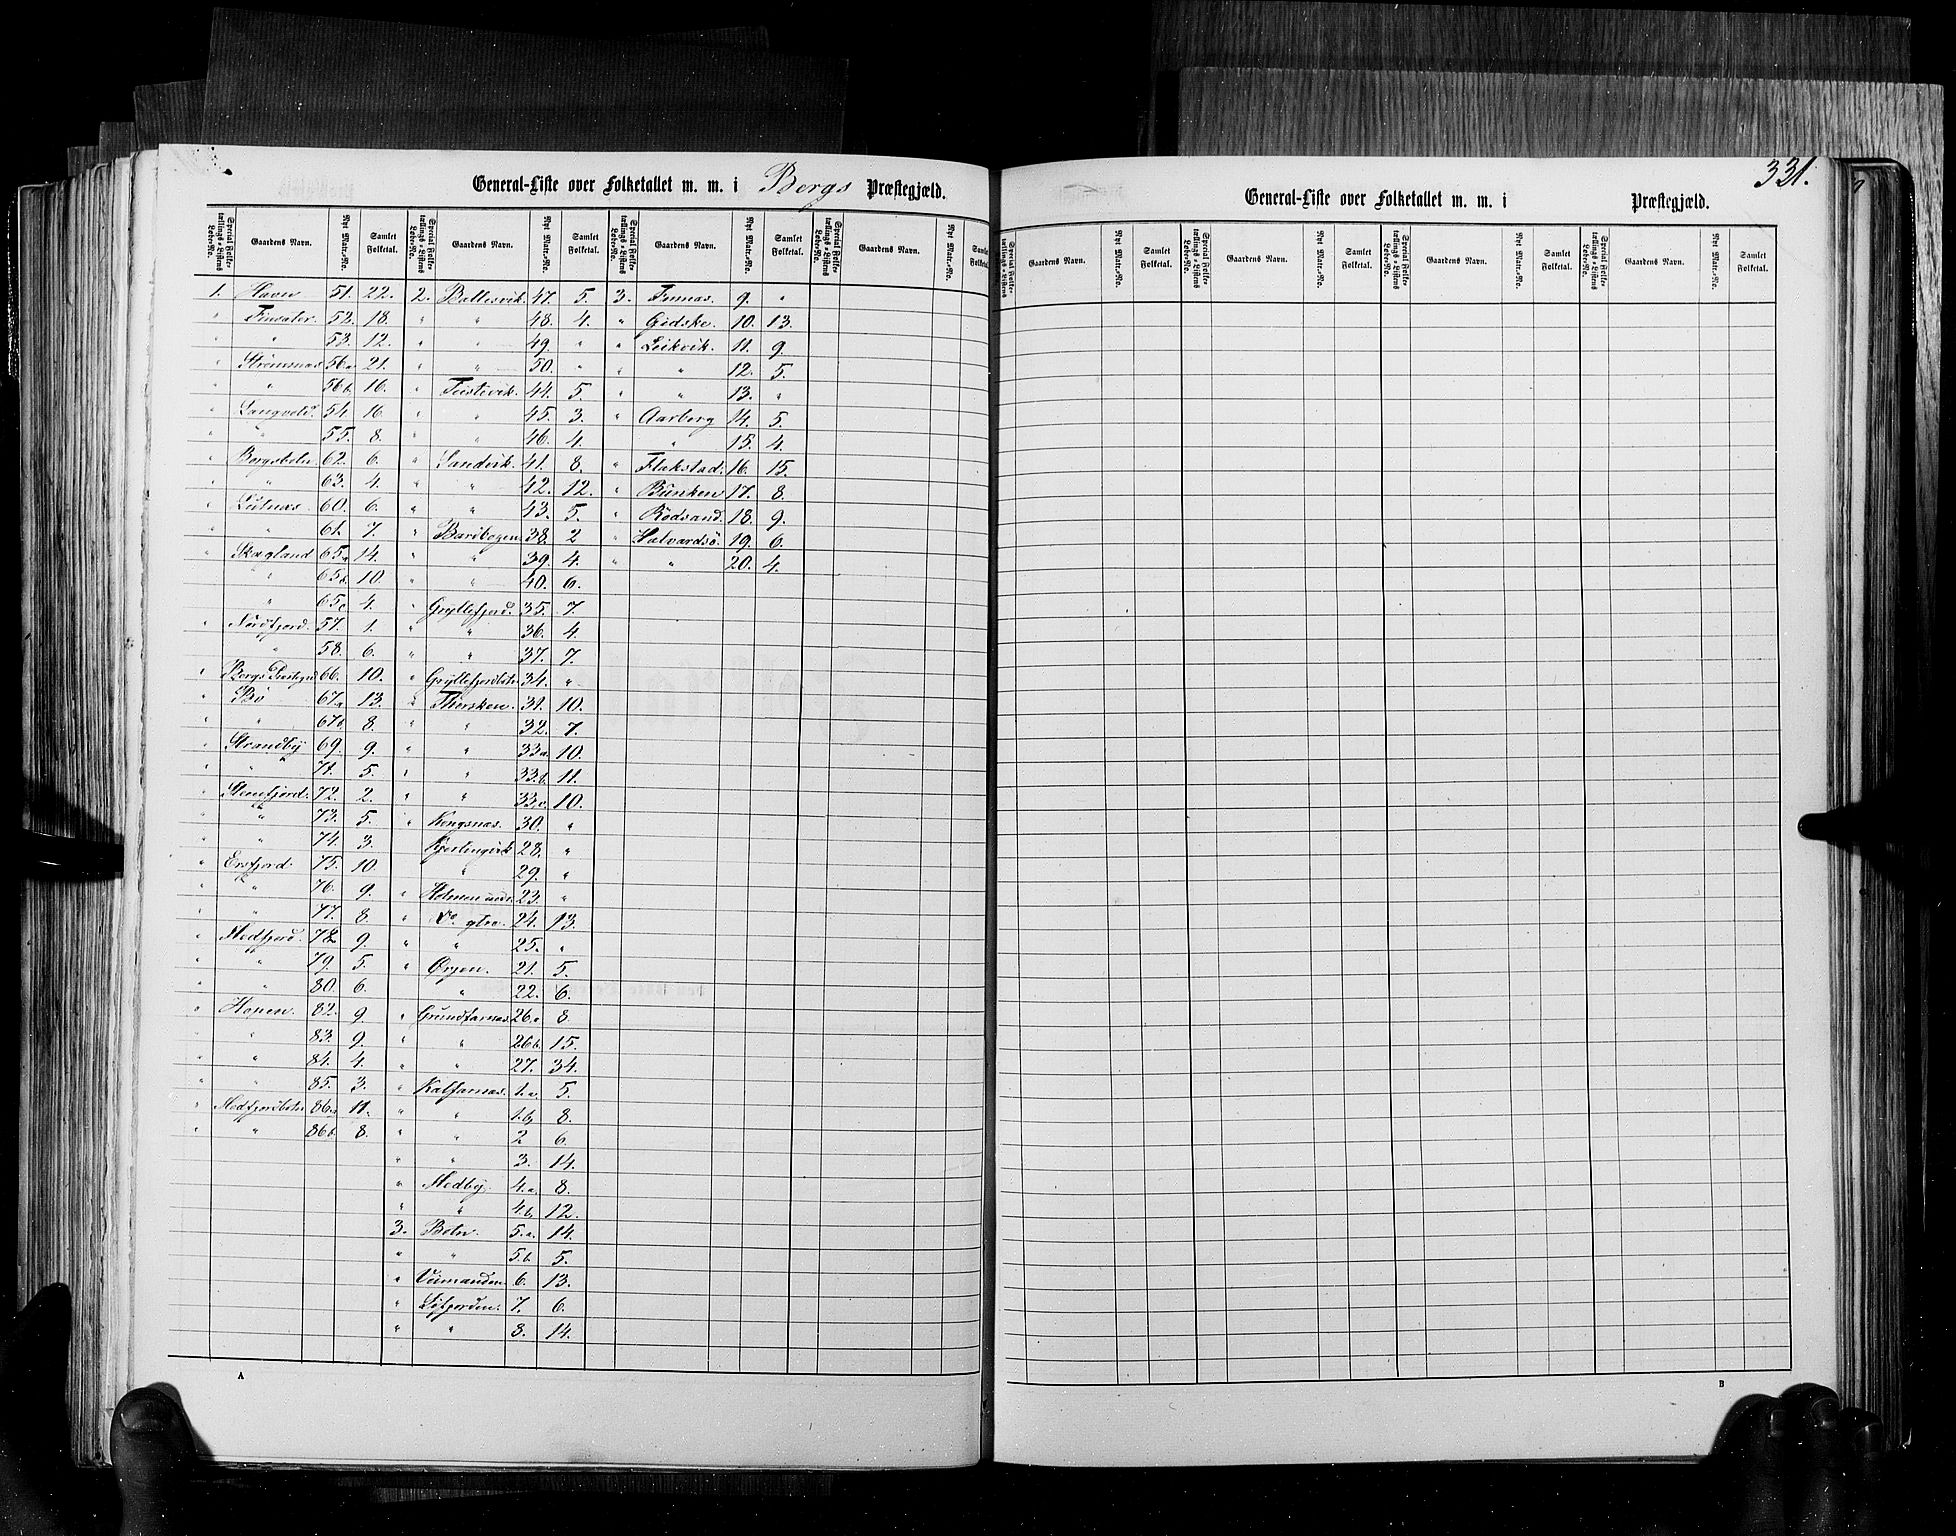 General-Liste over Folketallet m. m. i Bergs Præstegjæld.
Special Folketællings-Listens Løbe-No. Gaardens Navn. Nyt Matr.-No. Samlet Folketal. Special Folketællings-Listens Løbe-No. Gaardens Navn. Nyt Matr.-No. Samlet Folketal. Special Folketællings-Listens Løbe-No. Gaardens Navn. Nyt Matr.-No. Samlet Folketal. Special Folketællings-Listens Løbe-No. Gaardens Navn. Nyt Matr.-No. Samlet Folketal.
1. Havn 51. 22.
" Finsæter. 52. 18.
" " 53. 12.
" Strömnæs 56a 21.
" " 56b 16.
" Langveld. 54. 16.
" " 55. 8.
" Bergsboln. 62. 6.
" " 63. 4.
" Leitnæs 60. 6.
" " 61. 7.
" Skagland 65a 14.
" " 65b. 10.
" 65c 4.
" Nordfjord. 57. 1.
" 58. 6.
" Bergs Præstegrd 66. 10.
" Bö 67a 13.
" " 67b 8.
" Strandby 69. 9.
" " 71. 5.
" Stenfjord. 72. 2.
" " 73. 5.
" " 74. 3.
" Ersfjord. 75. 10.
" " 76. 9.
" " 77. 8.
" Medfjord. 78. 9.
" " 79. 5.
" " 80. 6.
" Honen. 82. 9.
" 83. 9.
" " 84. 4.
" " 85. 3.
" Medfjordbotn 86a 11.
" " 86b. 8.
2. Ballesvik. 47. 5.
" " 48. 4.
" " 49. "
" " 50. "
" Teistevik. 44. 5.
" " 45. 3.
" " 46. 4.
" Sandvik. 41. 8.
" " 42. 12.
" " 43. 5.
" Barbogen. 38. 2
" " 39. 4.
" " 40. 6.
" Gryllefjord. 35. 7.
" 36. 4.
" " 37. 7.
" Gryllefjordbotn 34. "
" Thorsken. 31. 10.
" " 32. 7.
" " 33a. 10.
" " 33.b. 11.
" " 33.c. 10.
" Kongsnæs. 30. "
Kjerlingvik 28. "
" 29. "
" Holmen indr. 23. "
" Do. ytre. 24. 13.
" " 25. "
" Örjen. 21. 5.
" 22. 6.
" Grundfarnæs. 26a 8.
" " 26b. 15.
" 27. 34.
" Kalfarnæs. 1.a. 5.
" " 1.b. 8.
" " 2 6.
" " 3. 14.
" Medby. 4.a. 8.
" " 4.b. 12.
3. Boln. 5.a. 14.
" " 5.b. 5.
" Veimanden. 6. 13.
" Lofjorden. 7. 6.
" " 8. 14.
3. Finnæs. 9. "
" Gidske. 10. 13.
" Leikvik. 11. 9.
" " 12. 5.
" " 13. "
" Aarberg 14. 5.
" 15. 4.
" Flakstad. 16. 15.
" Bunken 17. 8.
" Rödsand. 18. 9.
" Halvardsö. 19. 6.
" " 20. 4.
A
331.
General-Liste over Folketallet m. m. i Præstegjæld.
Special Folketællings-Listens Gaardens Navn. Nyt Matr.-No. Samlet Folketal. Special Folketællings-Listens Løbe-No. Gaardens Navn. Nyt Matr.-No. Samlet Folketal. Special Folketællings-Listens Løbe-No. Gaardens Navn. Nyt Matr.-No. Samlet Folketal. Special Folketællings-Listens Løbe-No. Gaardens Navn. Nyt Matr.-No. Samlet Folketal.
B